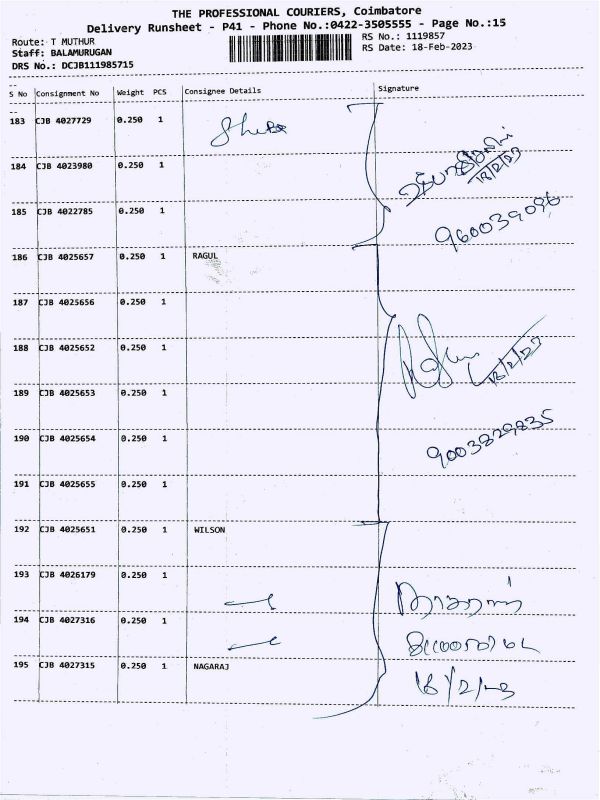 THE PROFESSIONAL COURIERS, Coimbatore
Delivery Runsheet - P41 - Phone No.:0422-3505555 - Page No.:15
Route: T MUTHUR RS No.: 1119857
Staff: BALAMURUGAN RS Date: 18-Feb-2023
DRS No.: DCJB111985715
S No Consignment No Weight PCS Consignee Details Signature
183 CJB 4027729 0.250 1
184 CJB 4023980 0.250 1
18/2/23
185 CJB 4022785 0.250 1
960039096
186 CJB 4025657 0.250 1 RAGUL
187 CJB 4025656 0.250 1
188 CJB 4025652 0.250 1
18/2/23
189 CJB 4025653 0.250 1
190 CJB 4025654 0.250 1
9003829835
191 CJB 4025655 0.250 1
192 CJB 4025651 0.250 1 WILSON
193 CJB 4026179 0.250 1
நாகராஜ்
194 CJB 4027316 0.250 1
195 CJB 4027315 0.250 1 NAGARAJ
18/2/23